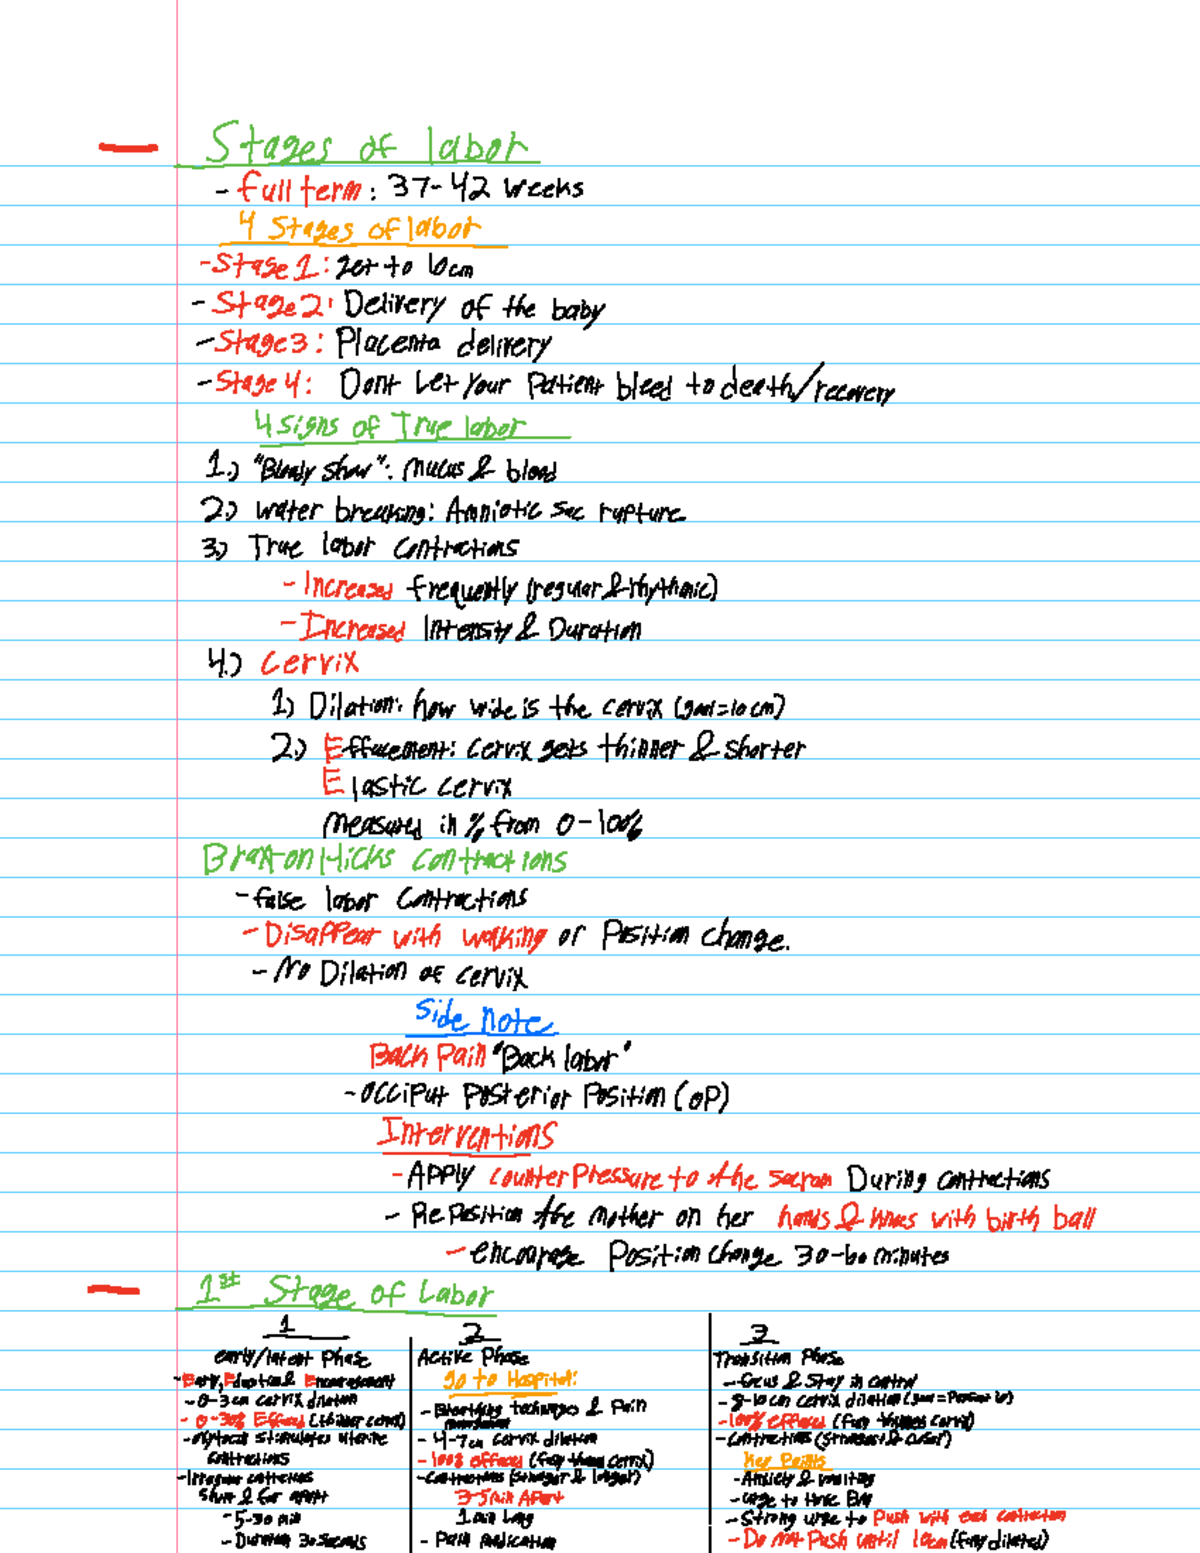 Stages of labor
- Full term: 37-42 weeks
4 Stages of labor
- Stage 1: get to 10cm
- Stage 2: Delivery of the baby
- Stage 3: Placenta delivery
- Stage 4: Dont Let Your Patient bleed to death/recovery
4 Signs of True labor
1.) "Bloody show": mucus & blood
2.) water breaking: Amniotic sac rupture
3.) True labor contractions
- Increased frequently (regular & rhythmic)
- Increased Intensity & Duration
4.) Cervix
1.) Dilation: how wide is the cervix (goal=10cm)
2.) Effacement: cervix gets thinner & shorter
Elastic cervix
measured in % from 0-100%
Braxton Hicks contractions
- false labor contractions
- Disappear with walking or Position change.
- No Dilation of cervix
Side note
Back Pain "Back labor"
- Occiput Posterior Position (OP)
Interventions
- Apply counter Pressure to the sacrum During contractions
- Reposition the mother on her hands & knees with birth ball
- encourage Position change 30-60 minutes
1st Stage of Labor
1
early/latent Phase
- Early, Education & Encouragement
- 0-3cm cervix dilation
- 0-30% Effaced (thinner cervix)
- oxytocin stimulates uterine
contractions
- Irregular contractions
Short & far apart
- 5-30 min
- Duration 30 seconds
2
Active Phase
go to Hospital!
- Breathing techniques & Pain
- 4-7cm cervix dilation
- 100% effaced (fully thinned cervix)
- Contractions (stronger & longer)
3-5 min Apart
1 min Long
- Pain medication
3
Transition Phase
- focus & Stay in control
- 8-10cm cervix dilation
- 100% effaced (fully thinned cervix)
- Contractions (Strongest & closer)
Key Points
- Anxiety & vomiting
- urge to have BM
- Strong urge to Push with each contraction
- Do not Push until 10cm (fully dilated)